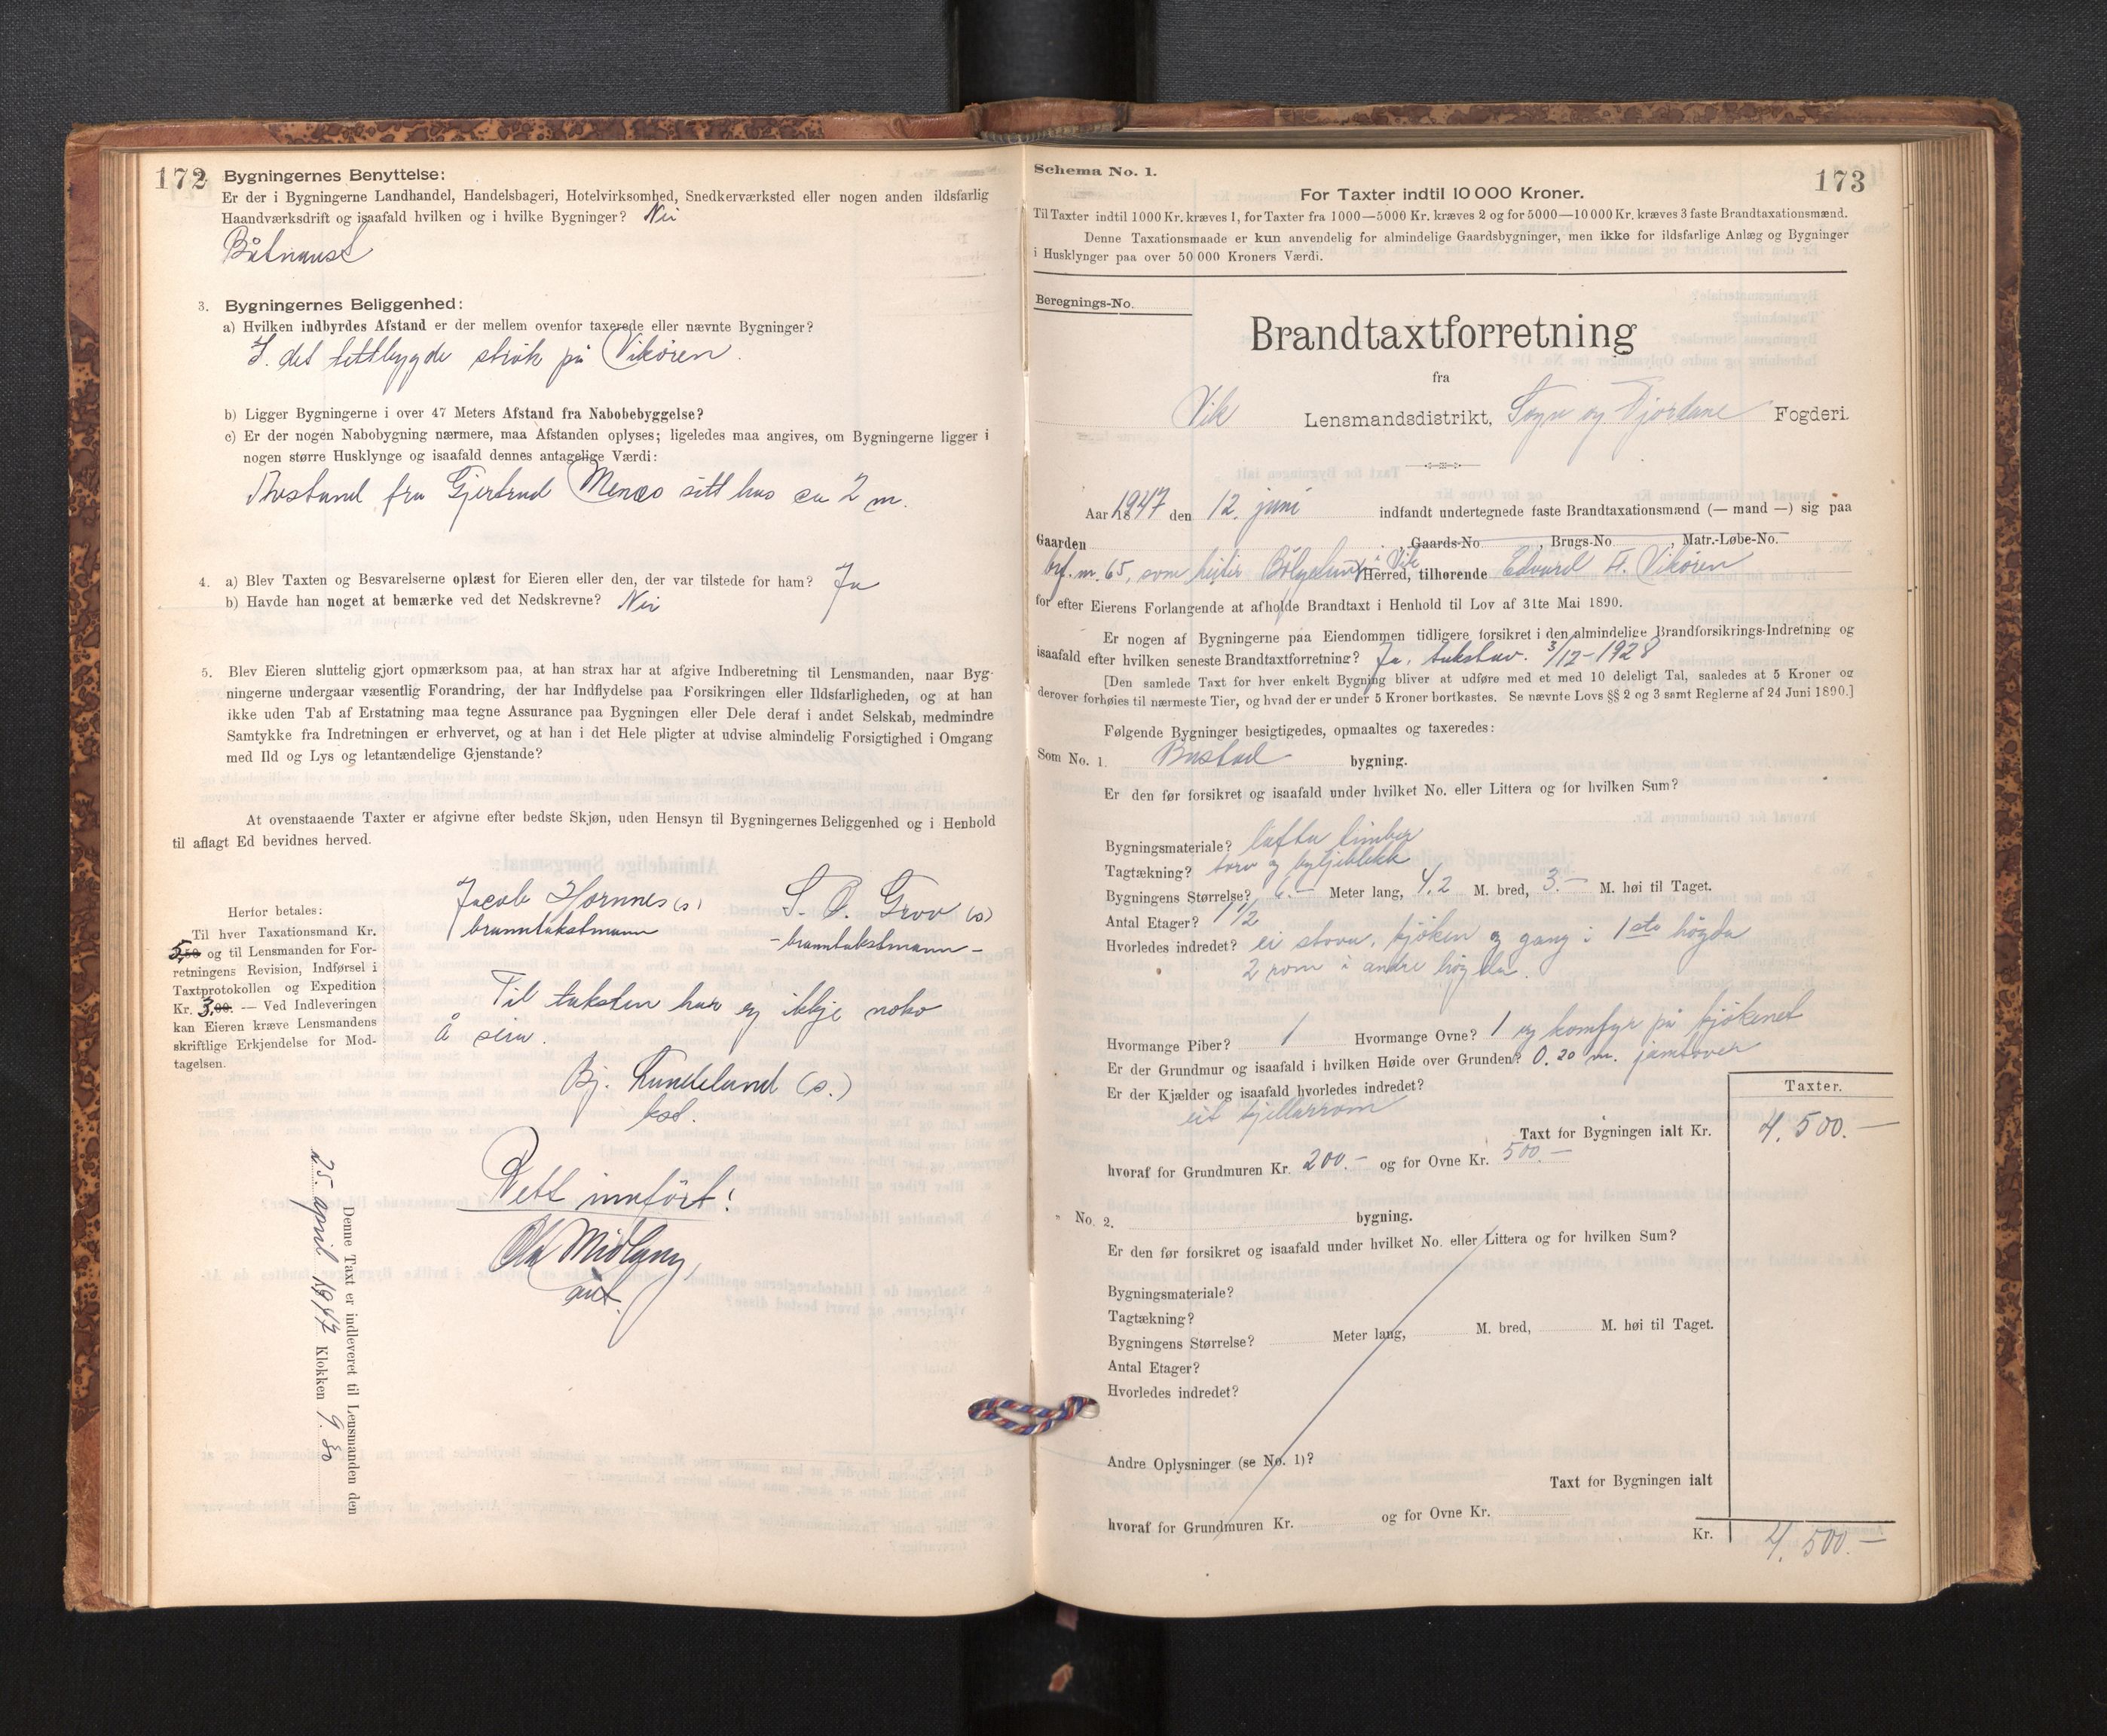 172
Bygningernes Benyttelse:
Er der i Bygningerne Landhandel, Handelsbageri, Hotelvirksomhed, Snedkerværksted eller nogen anden ildsfarlig
Haandværksdrift og isaafald hvilken og i hvilke Bygninger? Nei
Båtnaust
3. Bygningernes Beliggenhed:
a) Hvilken indbyrdes Afstand er der mellem ovenfor taxerede eller nævnte Bygninger?
I det tettbygde strøk på Vikøren.
b) Ligger Bygningerne i over 47 Meters Afstand fra Nabobebyggelse?
c) Er der nogen Nabobygning nærmere, maa Afstanden oplyses; ligeledes maa angives, om Bygningerne ligger i
nogen større Husklynge og isaafald dennes antagelige Værdi:
Avstand fra Gjertrud sitt hus ca 2 m.
4. a) Blev Taxten og Besvarelserne oplæst for Eieren eller den, der var tilstede for ham? Ja
b) Havde han noget at bemærke ved det Nedskrevne? Nei
5. Blev Eieren sluttelig gjort opmærksom paa, at han strax har at afgive Indberetning til Lensmanden, naar Byg-
ningerne undergaar væsentlig Forandring, der har Indflydelse paa Forsikringen eller Ildsfarligheden, og at han
ikke uden Tab af Erstatning maa tegne Assurance paa Bygningen eller Dele deraf i andet Selskab, medmindre
Samtykke fra Indretningen er erhvervet, og at han i det Hele pligter at udvise almindelig Forsigtighed i Omgang
med Ild og Lys og letantændelige Gjenstande?
At ovenstaaende Taxter er afgivne efter bedste Skjøn, uden Hensyn til Bygningernes Beliggenhed og i Henhold
til aflagt Ed bevidnes herved.
Jacob Hornnes (s) S. O. Grov (s)
branntakstmann - branntakstmann -
Herfor betales:
Til hver Taxationsmand Kr.
5,50 og til Lensmanden for For-
retningens Revision, Indførsel i
Taxtprotokollen og Expedition
Kr. 3,00. — Ved Indleveringen
kan Eieren kræve Lensmandens
skriftlige Erkjendelse for Mod-
tagelsen.
Til taksten har eg ikkje noko
å seia.
Bj. Tundeland (s.)
kst.
Rett innført:
Ola Midlgny
ass.
Denne Taxt er indleveret til Lensmanden den
25. april 1947 Klokken 9.30
Schema No. 1.
173
For Taxter indtil 10 000 Kroner.
Til Taxter indtil 1000 Kr. kræves 1, for Taxter fra 1000—5000 Kr. kræves 2 og for 5000—10 000 Kr. kræves 3 faste Brandtaxationsmænd.
Denne Taxationsmaade er kun anvendelig for almindelige Gaardsbygninger, men ikke for ildsfarlige Anlæg og Bygninger
i Husklynger paa over 50 000 Kroners Værdi.
Beregnings-No.
Brandtaxtforretning
fra
Vik Lensmandsdistrikt, Sogn og Fjordane Fogderi.
Aar 1947 den 12. juni indfandt undertegnede faste Brandtaxationsmænd (— mand —) sig paa
Gaarden , Gaards-No. , Brugs-No. , Matr.-Løbe-No.
brf. nr. 65, som heiter Bølgelund i Vik Herred, tilhørende Edvard A. Vikøren
for efter Eierens Forlangende at afholde Brandtaxt i Henhold til Lov af 31te Mai 1890.
Er nogen af Bygningerne paa Eiendommen tidligere forsikret i den almindelige Brandforsikrings-Indretning og
isaafald efter hvilken seneste Brandtaxtforretning? Ja, takstav. 3/12-1928
[Den samlede Taxt for hver enkelt Bygning bliver at udføre med et med 10 deleligt Tal, saaledes at 5 Kroner og
derover forhøies til nærmeste Tier, og hvad der er under 5 Kroner bortkastes. Se nævnte Lovs §§ 2 og 3 samt Reglerne af 24 Juni 1890.]
Følgende Bygninger besigtigedes, opmaaltes og taxeredes:
Som No. 1. Bustad bygning.
Er den før forsikret og isaafald under hvilket No. eller Littera og for hvilken Sum?
Bygningsmateriale? lafta timber
Tagtækning? torv og bylgjeblekk
Bygningens Størrelse? 6.- Meter lang, 4,2 M. bred, 3.- M. høi til Taget.
Antal Etager? 1 1/2
Hvorledes indredet? ei stova, kjøken og gang i 1ste høgda
2 rom i andre høgda.
Hvormange Piber? 1 Hvormange Ovne? 1 og komfyr på kjøkenet
Er der Grundmur og isaafald i hvilken Høide over Grunden? 0.20 m. jamtover
Er der Kjælder og isaafald hvorledes indredet?
eit kjellarrom
Taxter.
Taxt for Bygningen ialt Kr. 4.500.-
hvoraf for Grundmuren Kr. 200.- og for Ovne Kr. 500.-
" No. 2. bygning.
Er den før forsikret og isaafald under hvilket No. eller Littera og for hvilken Sum?
Bygningsmateriale?
Tagtækning?
Bygningens Størrelse? Meter lang, M. bred, M. høi til Taget.
Antal Etager?
Hvorledes indredet?
Andre Oplysninger (se No. 1)?
Taxt for Bygningen ialt
hvoraf for Grundmuren Kr. og for Ovne Kr.
Kr. 4.500.-